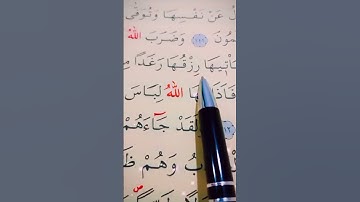 لُ عَنْ نَفْسِهَا وَتُوَفّٰى
مُونَ ﴿١١١﴾ وَضَرَبَ اللّٰهُ
أْتِيهَا رِزْقُهَا رَغَدًا مِ
فَاَذَاقَهَا اللّٰهُ لِبَاسَ
وَلَقَدْ جَٓاءَهُمْ
ابُ وَهُمْ ظَ